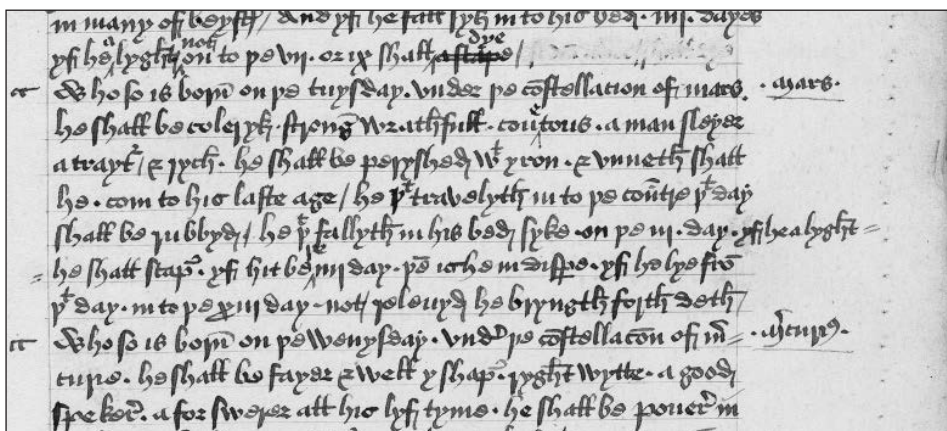 in many of beystꝭ / And yf he fall syk in to his bed . iiij . dayes
yf he a lyght not on to þe vij . or ix shall dye a stape /
Who so is born̄ on þe tuysday . vnder þe cōstellacion of mars . . mars .
he shall be coleryk . stronḡ wrathfull . couetous . a man sleyer
a traytr̄ / & rych . he shall be perysshed wt yron . & vnneth shall
he . com to his laste age / he þt travelyth in to þe coūtre þt day
shall be rubbyd / he þt fallyth in his bed syke . on þe iij . day . yf he a lyght =
= he shall scap̄ . yf hit be þe iiij day . þē is he in dispe . yf he lye frō
þt day . in to þe xiij day . not releuyd he bryngth forth deth /
Who so is born̄ on þe wenysday . vndr̄ þe cōstellacōn of m̄ = . m̄curius .
curie . he shall be fayer & well y shap̄ . ryght wytte . a good
speker̄ . a for swerer all his lyf tyme . he shall be pouer̄ in